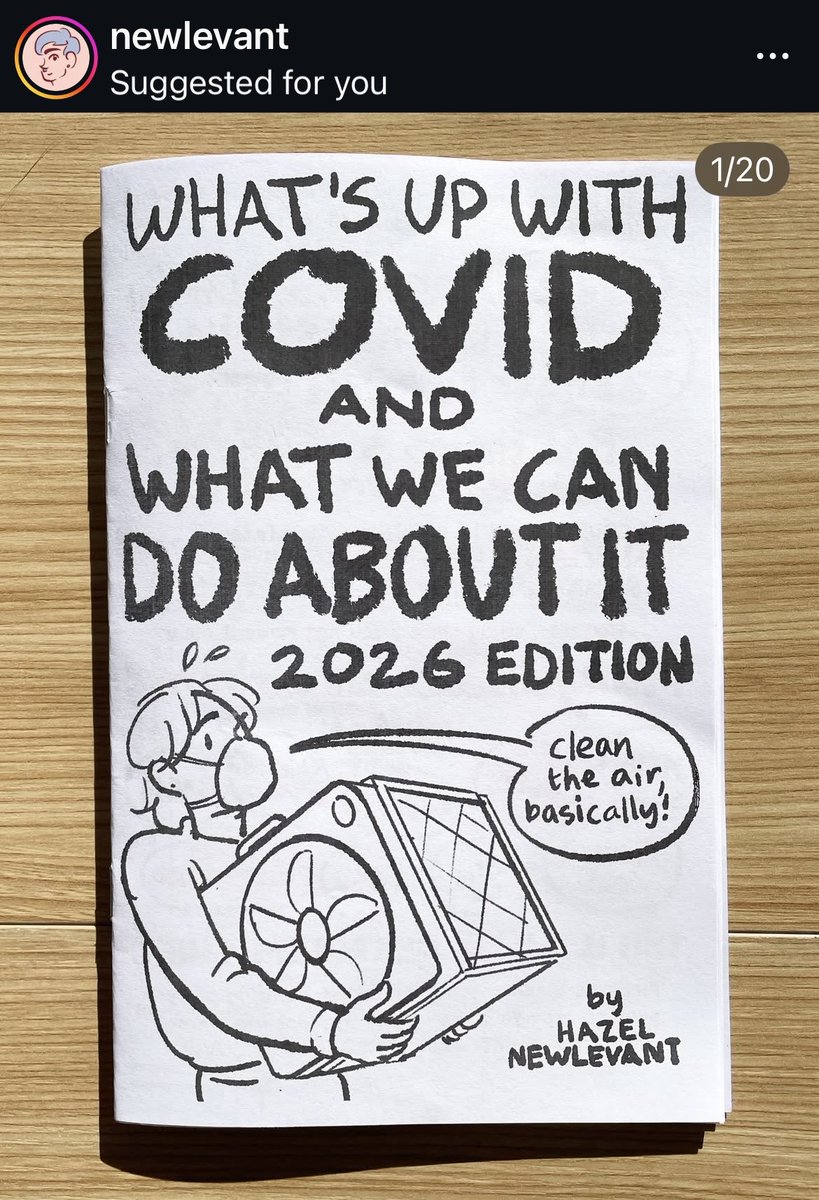 newlevant
Suggested for you
1/20
WHAT'S UP WITH
COVID
AND
WHAT WE CAN
DO ABOUT IT
2026 EDITION
clean
the air,
basically!
by
HAZEL
NEWLEVANT